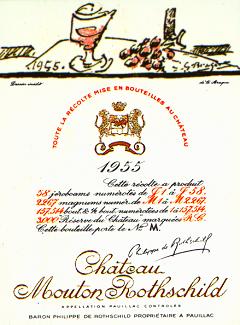 1955.
G. Braque
Dessin inédit
de G. Braque
TOUTE LA RÉCOLTE MISE EN BOUTEILLES AU CHÂTEAU
1955
Cette récolte a produit
58 jéroboams numérotés de G.J. 1 à G.J. 58.
2267 magnums numér. de M. 1 à M 2267
157.314 bout. & ½ bout. numérotées de 1 à 157.314
3000 Réserve du Château marquées R.C.
Cette bouteille porte le No M.
Philippe de Rothschild
Château
Mouton Rothschild
APPELLATION PAUILLAC CONTROLÉE
BARON PHILIPPE DE ROTHSCHILD PROPRIÉTAIRE A PAUILLAC